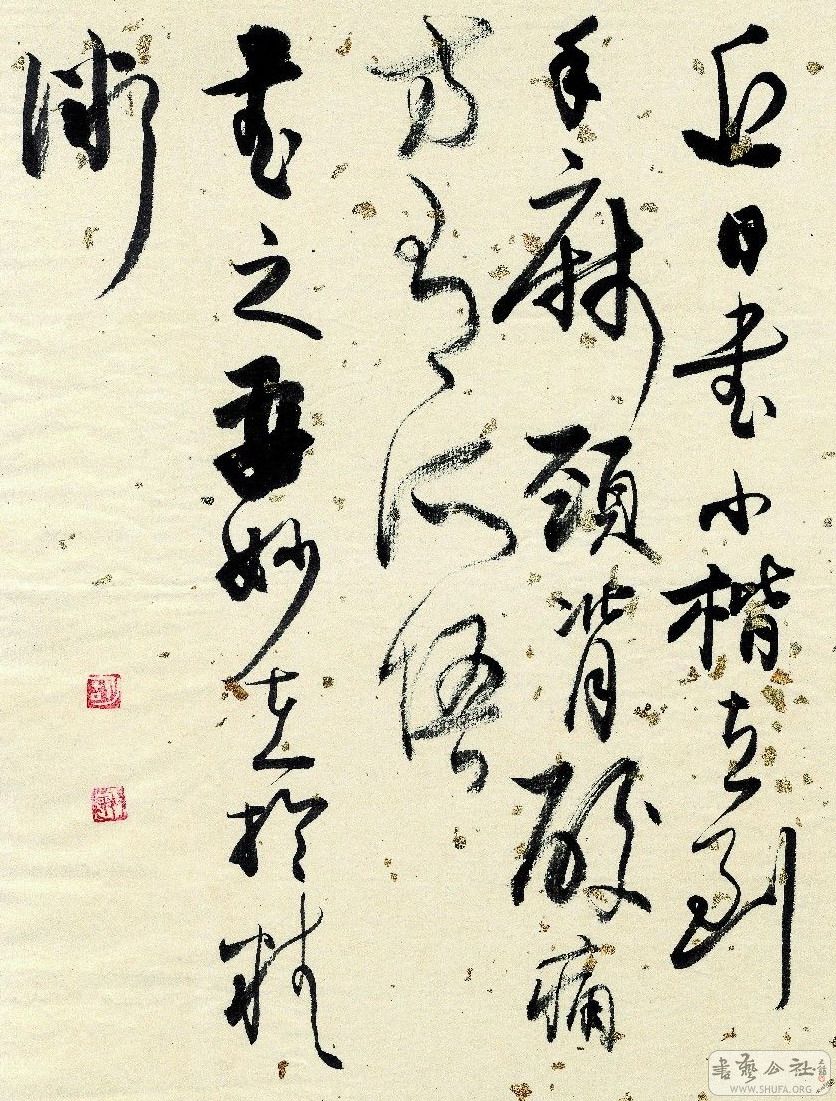 近日書小楷直到
手麻頸背酸痛
方有所悟
書之要妙在於精
微
書藝公社
WWW.SHUFA.ORG